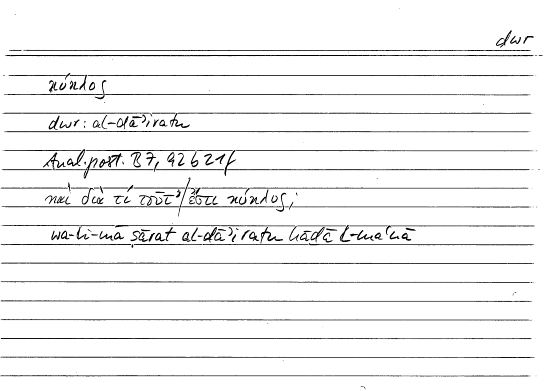 dwr
κύκλος
dwr: al-dāʾiratu
Anal. post. B 7, 92 b 21f
καὶ διὰ τί τοῦτ᾽/ἔστι κύκλος;
wa-li-mā ṣārat al-dāʾiratu hāḏā l-maʿnā